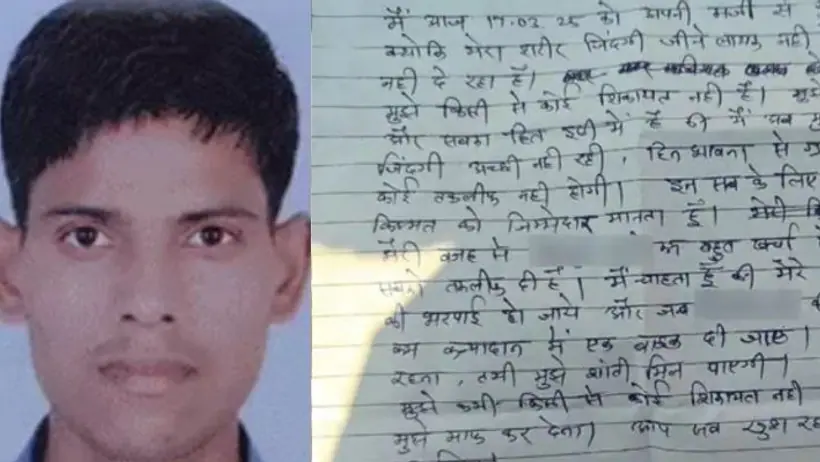 मैं आज 17.02 25 को अपनी मर्जी से
क्योंकि मेरा शरीर जिंदगी जीने लायक नही
नही दे रहा है।
मुझे किसी से कोई शिकायत नही है।
और सबका हित इसी में है की मैं अब
जिंदगी अच्छी नही रही, हिन भावना से
कोई तकलीफ नही होगी। इन सब के लिए
किस्मत को जिम्मेदार मानता हूँ।
मेरी वजह से का बहुत खर्चा
सबको तकलीफ दी है। मैं चाहता हूँ की मेरे
की भरपाई हो जाये और जब
कन्यादान में एक बाइक दी जाए।
रहना, तभी मुझे शांती मिल पाएगी।
मुझे कभी किसी से कोई शिकायत नही
मुझे माफ कर देना। आप सब खुश